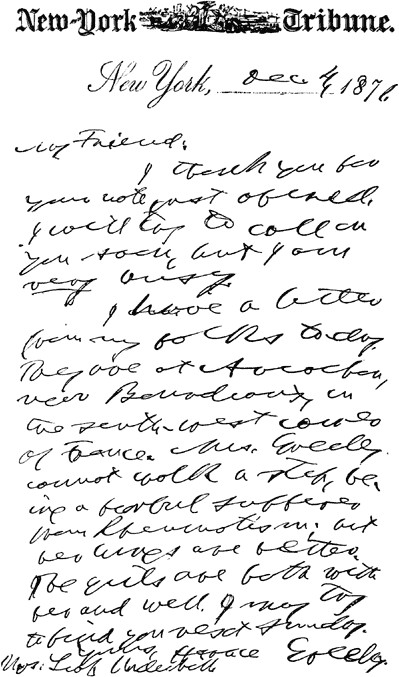 New-York Tribune.
New York, Dec 4, 1870
My Friend:
I thank you for
your note just opened.
I will try to call on
you soon, but I am
very busy.
I have a letter
from my folks today.
They are at Arcachon,
near Bordeaux, in
the south-west corner
of France. Mrs. Greeley
cannot walk a step, be-
ing a fearful sufferer
from Rheumatism; but
her lungs are better.
The girls are both with
her and well. I may try
to find you next Sunday.
Yours, Horace Greeley.
Mrs. Underhill